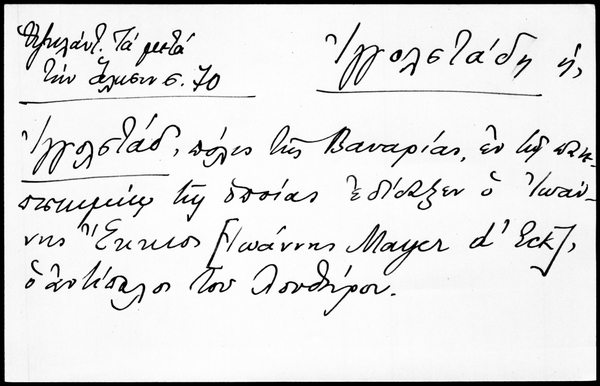 Τὰ μετὰ
τὴν ἅλωσιν σ. 70
Ἰγγολστάδη ἡ,
Ἰγγολστάδ, πόλις τῆς Βαυαρίας, ἐν τῷ πανε-
πιστημίῳ τῆς ὁποίας ἐδίδαξεν ὁ Ἰωάν-
νης Ἔκκιος [Ἰωάννης Mayer d' Eck],
ὁ ἀντίπαλος τοῦ Λουθήρου.